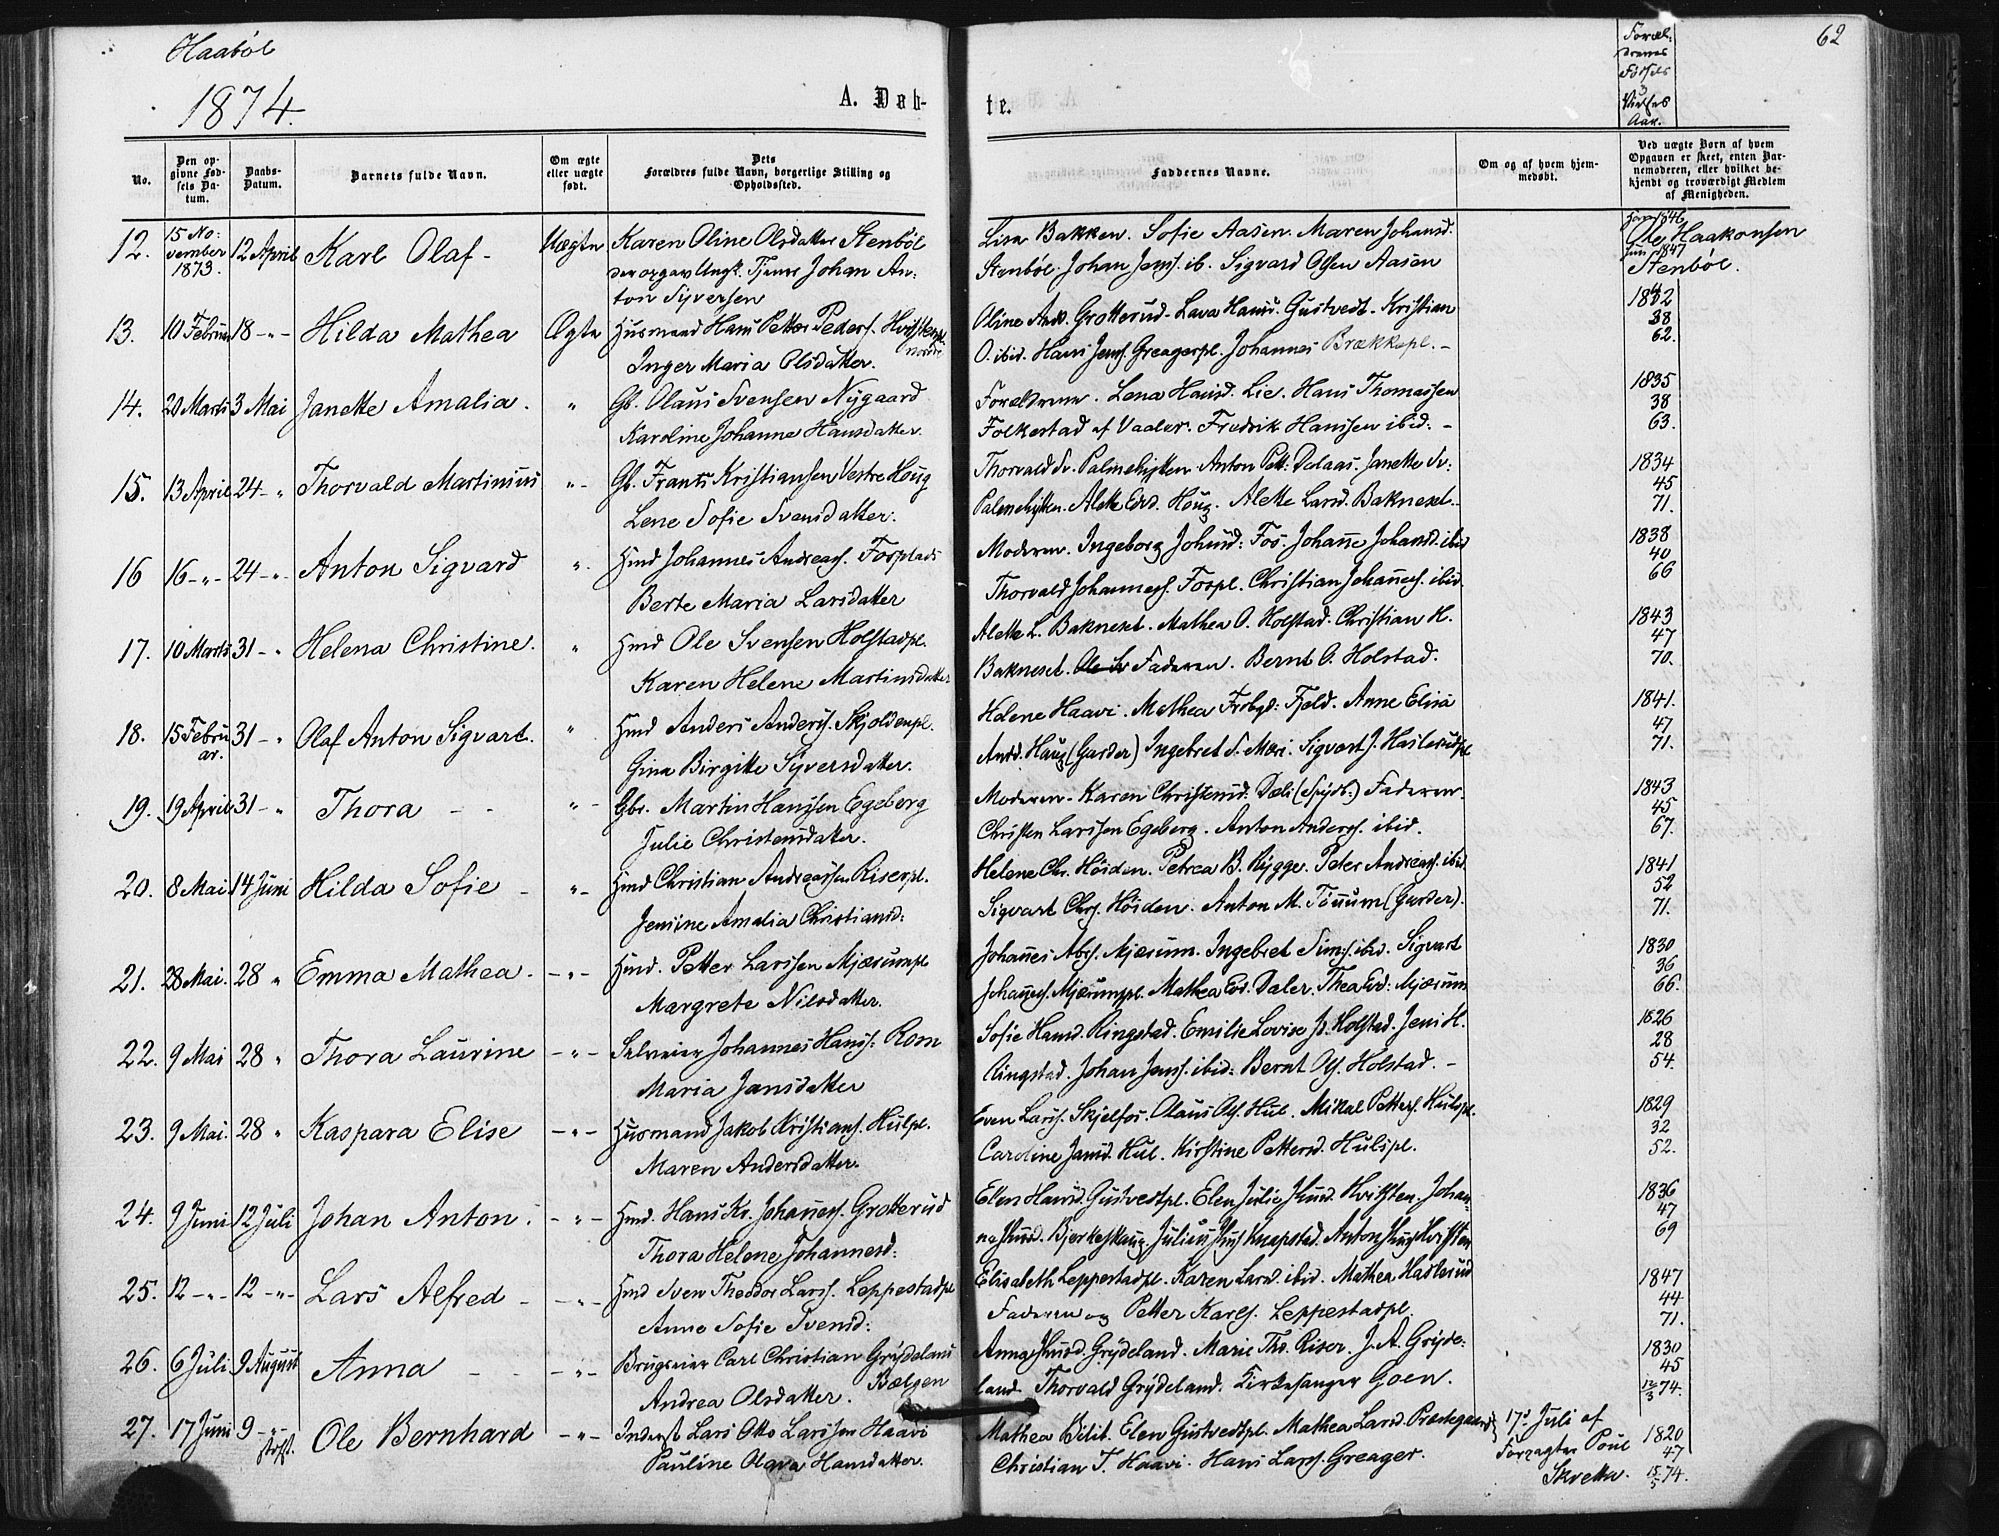 Haabøl
62
1874.
A. Døb-
te.
Foræl-
drenes
Fødsels
Vielses
Aar.
No.
Den op-
givne Fød-
sels Da-
tum.
Daabs-
Datum.
Barnets fulde Navn.
Om ægte
eller uægte
født.
Dets
Forældres fulde Navn, borgerlige Stilling og
Opholdssted.
Faddernes Navne.
Om og af hvem hjem-
medøbt.
Ved uægte Børn af hvem
Opgaven er skeet, enten Bar-
nemoderen, eller hvilket be-
kjendt og troværdigt Medlem
af Menigheden.
12. 15 No-
vember
1873. 12 April Karl Olaf - Uægte Karen Oline Olsdatter Stenbøl
Tjener Johan An-
ton Syversen
Lisa Bakken. Sofie Aasen. Maren Johansd.
Stenbøl. Johan Jens. ib. Sigvard Olsen Aasen
1846
Ole Haakonsen
1847
Stenbøl.
13. 10 Februar 18 -"- Hilda Mathea Ægte Husmand Hans Petter Peders.
Inger Maria Olsdatter.
Oline And. Grotterud. Lava Hansd. Gustvedt. Kristian
O. ibid. Hans Jens. Greagerpl. Johannes Brækkepl. -
38
62.
14. 20 Marts 3 Mai Janette Amalia. " Gb. Olaus Svensen Nygaard
Karoline Johanne Hansdatter.
Forældrene. Lena Hansd. Lie. Hans Thomassen
Folkestad af Vaaler. Fredrik Hanssen ibid. -
1835
38
63.
15. 13 April 24 - " Thorvald Martinius "- Gb. Frants Kristiansen Vestre Houg
Lene Sofie Svensdatter.
Thorvald Sv. Palmehytten. Anton Pett. Dalaas. Janette Sv:
Palmehytten. Alette Evd. Houg. Alette Larsd. Bakneset.
1834
45
71.
16 16 -"- 24 -"- Anton Sigvard ". Hmd Johannes Andreass. Fosplads
Berte Maria Larsdatter
Moderen. Ingeborg Johnsd: Fos. Johanne Johansd. ibid
Thorvald Johanness. Fospl. Christian Johanness. ibid.
1838
40
66
17. 10 Marts 31 - " Helena Christine. " Hmd Ole Svensen Holstadpl.
Karen Helene Martinsdatter
Alette L. Bakneset. Mathea O. Holstad. Christian H.
Bakneset. Ole Sv Faderen. Bernt O. Holstad.
1843
47
70.
18. 15 Febru
ar. 31 - " Olaf Anton Sigvart. " Hmd Anders Anders. Skjoldenpl.
Gina Birgitte Syversdatter.
Helene Haavi. Mathea Fjeld. Anne Elisa
Haug (Garder) Ingebret S. Møri. Sigvart J. Haslerudpl
1841.
47
71.
19. 19 April 31 - " Thora - - "- Gbr. Martin Hanssen Egeberg
Julie Christensdatter.
Moderen - Karen Christensd: Dæli (Spydb.) Faderen.
Christen Larssen Egeberg. Anton Anders. ibid.
1843
45
67.
20. 8 Mai 14 Juni Hilda Sofie - "- Hmd Christian Andreassen Riserpl.
Jensine Amalia Christiansd:
Helene Chr. Høiden. Petrea B. Rygge. Peter Andreass. ibid
Sigvart Chrs. Høiden. Anton M. (Garder).
1841.
52
71.
21. 28 Mai. 28 " Emma Mathea. -"- Hmd. Petter Larssen Mjærumpl
Margrete Nilsdatter.
Johannes Abrs. Mjærum. Ingebret Sims. ibid. Sigvart
Johanness. Mjærumpl. Mathea Evd. Daler. Thea Evd: Mjærum
1830
36
66.
22. 9 Mai 28 " Thora Laurine -"- Selveier Johannes Hans: Rom
Maria Jansdatter
Sofie Hansd. Ringstad. Emilie Lovise Js. Holstad. Jens H.
Ringstad. Johan Jens. ibid: Bernt Ols. Holstad. -
1826
28
54.
23. 9 Mai. 28 " Kaspara Elise -"- Husmand Jakob Kristians. Hulpl.
Maren Andersdatter.
Even Lars. Skjelfos. Olaus Ols. Hul. Mikal Petters. Hulspl.
Caroline Jansd. Hul. Kirstine Pettersd. Hulspl.
1829
32
52.
24. 9 Juni 12 Juli Johan Anton. -"- Hmd. Hans Kr. Johanness. Grotterud
Thora Helene Johannesd:
Ellen Hansd. Gustvedtpl. Elen Julie Hvitsten. Johan-
ne Bjerkeskaug. Julius Knapstad. Anton Hvitsten
1836
47
69
25. 12 -"- 12 -"- Lars Alfred - -"- Hmd Sven Theodor Lars. Leppestadpl
Anne Sofie Svensd:
Elisabeth Leppestadpl. Karen Larsd. ibid. Mathea Haslerud
Faderen og Petter Karls. Leppestadpl.
1847
44
71.
26. 6 Juli 9 August Anna - - -"- Brugseier Carl Christian Grydeland
Andrea Olsdatter. Bælgen
Anna Grydeland. Marie Ths. Riser. J. A. Gryde-
land. Thorvald Grydeland. Kirkesanger Goen.
1830
45
12/3 74.
27. 17 Juni 9 -"- Ole Bernhard -"- Inderst Lars Otto Larssen Haavi
Pauline Olava Hansdatter.
Mathea Bilit. Elen Gustvedtpl. Mathea Larsd. Prestegaard
Christian T. Haavi. Hans Lars. Greager.
17d Juli af
Forpagter Poul
Skretta.
1820
47
15/5 74.